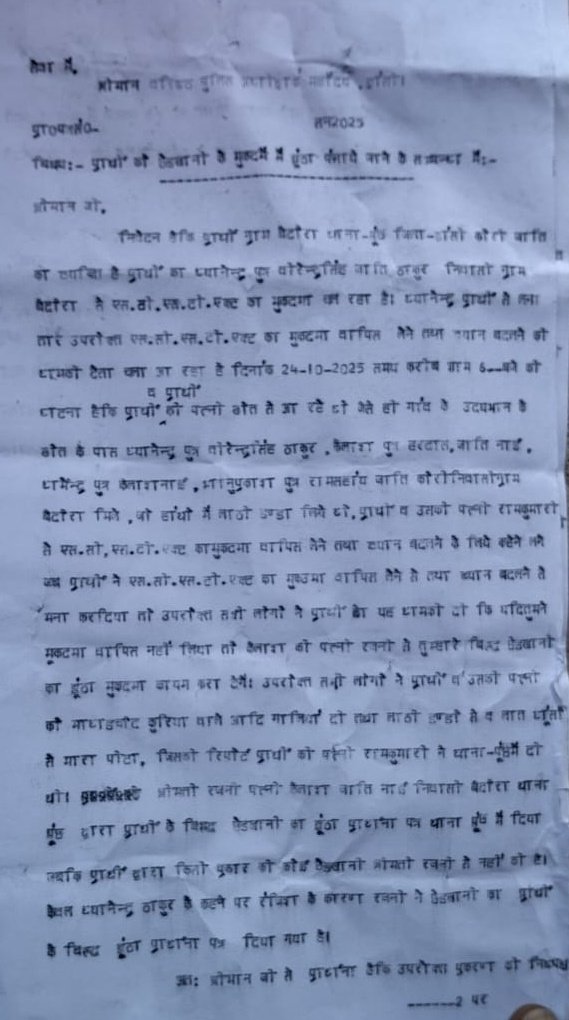 सेवा में,
श्रीमान वरिष्ठ पुलिस अधीक्षक महोदय, झांसी।
प्रा०प०सं०-                    सन2025
विषय:- प्रार्थी को छेडखानी के मुकदमें में झूंठा फंसाये जाने के सम्बन्ध में:-
श्रीमान जी,
निवेदन हैकि प्रार्थी ग्राम बेटोरा थाना-पूंछ जिला-झांसी कोरी जाति
का व्यक्ति है प्रार्थी का ध्यानेन्द्र पुत्र वीरेन्द्रसिंह जाति ठाकुर निवासी ग्राम
बेटोरा से एस.सी.एस.टी.एक्ट का मुकदमा चल रहा है। ध्यानेन्द्र प्रार्थी से लगा
तार उपरोक्त एस.सी.एस.टी.एक्ट का मुकदमा वापिस लेने तथा बयान बदलने की
धामकी देता चला आ रहा है दिनांक 24-10-2025 समय करीब शाम 6 बजे की
व प्रार्थी
घटना हैकि प्रार्थी की पत्नी खेत से आ रहे थे जैसे ही गांव के उदयभान के
खेत के पास ध्यानेन्द्र पुत्र वीरेन्द्रसिंह ठाकुर, कैलाश पुत्र हरदास,जाति नाई,
धर्मेन्द्र पुत्र कैलाशनाई, भानुप्रकाश पुत्र रामसहाय जाति कोरीनिवासीग्राम
बेटोरा मिले, जो हांथों में लाठी डण्डा लिये थे, प्रार्थी व उसकी पत्नी रामकुमारी
से एस.सी.एस.टी.एक्ट कामुकदमा वापिस लेने तथा बयान बदलने के लिये कहने लगे
जब प्रार्थी ने एस.सी.एस.टी.एक्ट का मुकदमा वापिस लेने से तथा ब्यान बदलने से
मना करदिया तो उपरोक्त सभी लोगों ने प्रार्थी को यह धामकी दी कि यदितुमने
मुकदमा वापिस नहीं लिया तो कैलाश की पत्नी रजनी से तुम्हारे विरूद्ध छेडखानी
का झूंठा मुकदमा कायम करा देंगे। उपरोक्त सभी लोगों ने प्रार्थी व उसकी पत्नी
को माधाडचोद कुरिया वाले आदि गालियां दी तथा लाठी डण्डों से व लात घूंसों
से मारा पीटा, जिसकी रिपोर्ट प्रार्थी की पत्नी रामकुमारी ने थाना-पूंछमें दी
थी। श्रीमती रजनी पत्नी कैलाश जाति नाई निवासी बेटोरा थाना
पूंछ द्वारा प्रार्थी के विरूद्ध छेडखानी का झूंठा प्रार्थना पत्र थाना पूंछ में दिया
जबकि प्रार्थी द्वारा किसी प्रकार की कोई छेडखानी श्रीमती रजनी से नहीं की है।
केवल ध्यानेन्द्र ठाकुर के कहने पर रंजिश के कारण रजनी ने छेडखानी का प्रार्थी
के विरूद्ध झूंठा प्रार्थना पत्र दिया गया है।
अत: श्रीमान जी से प्रार्थना हैकि उपरोक्त प्रकरण की निष्पक्ष
------2 पर